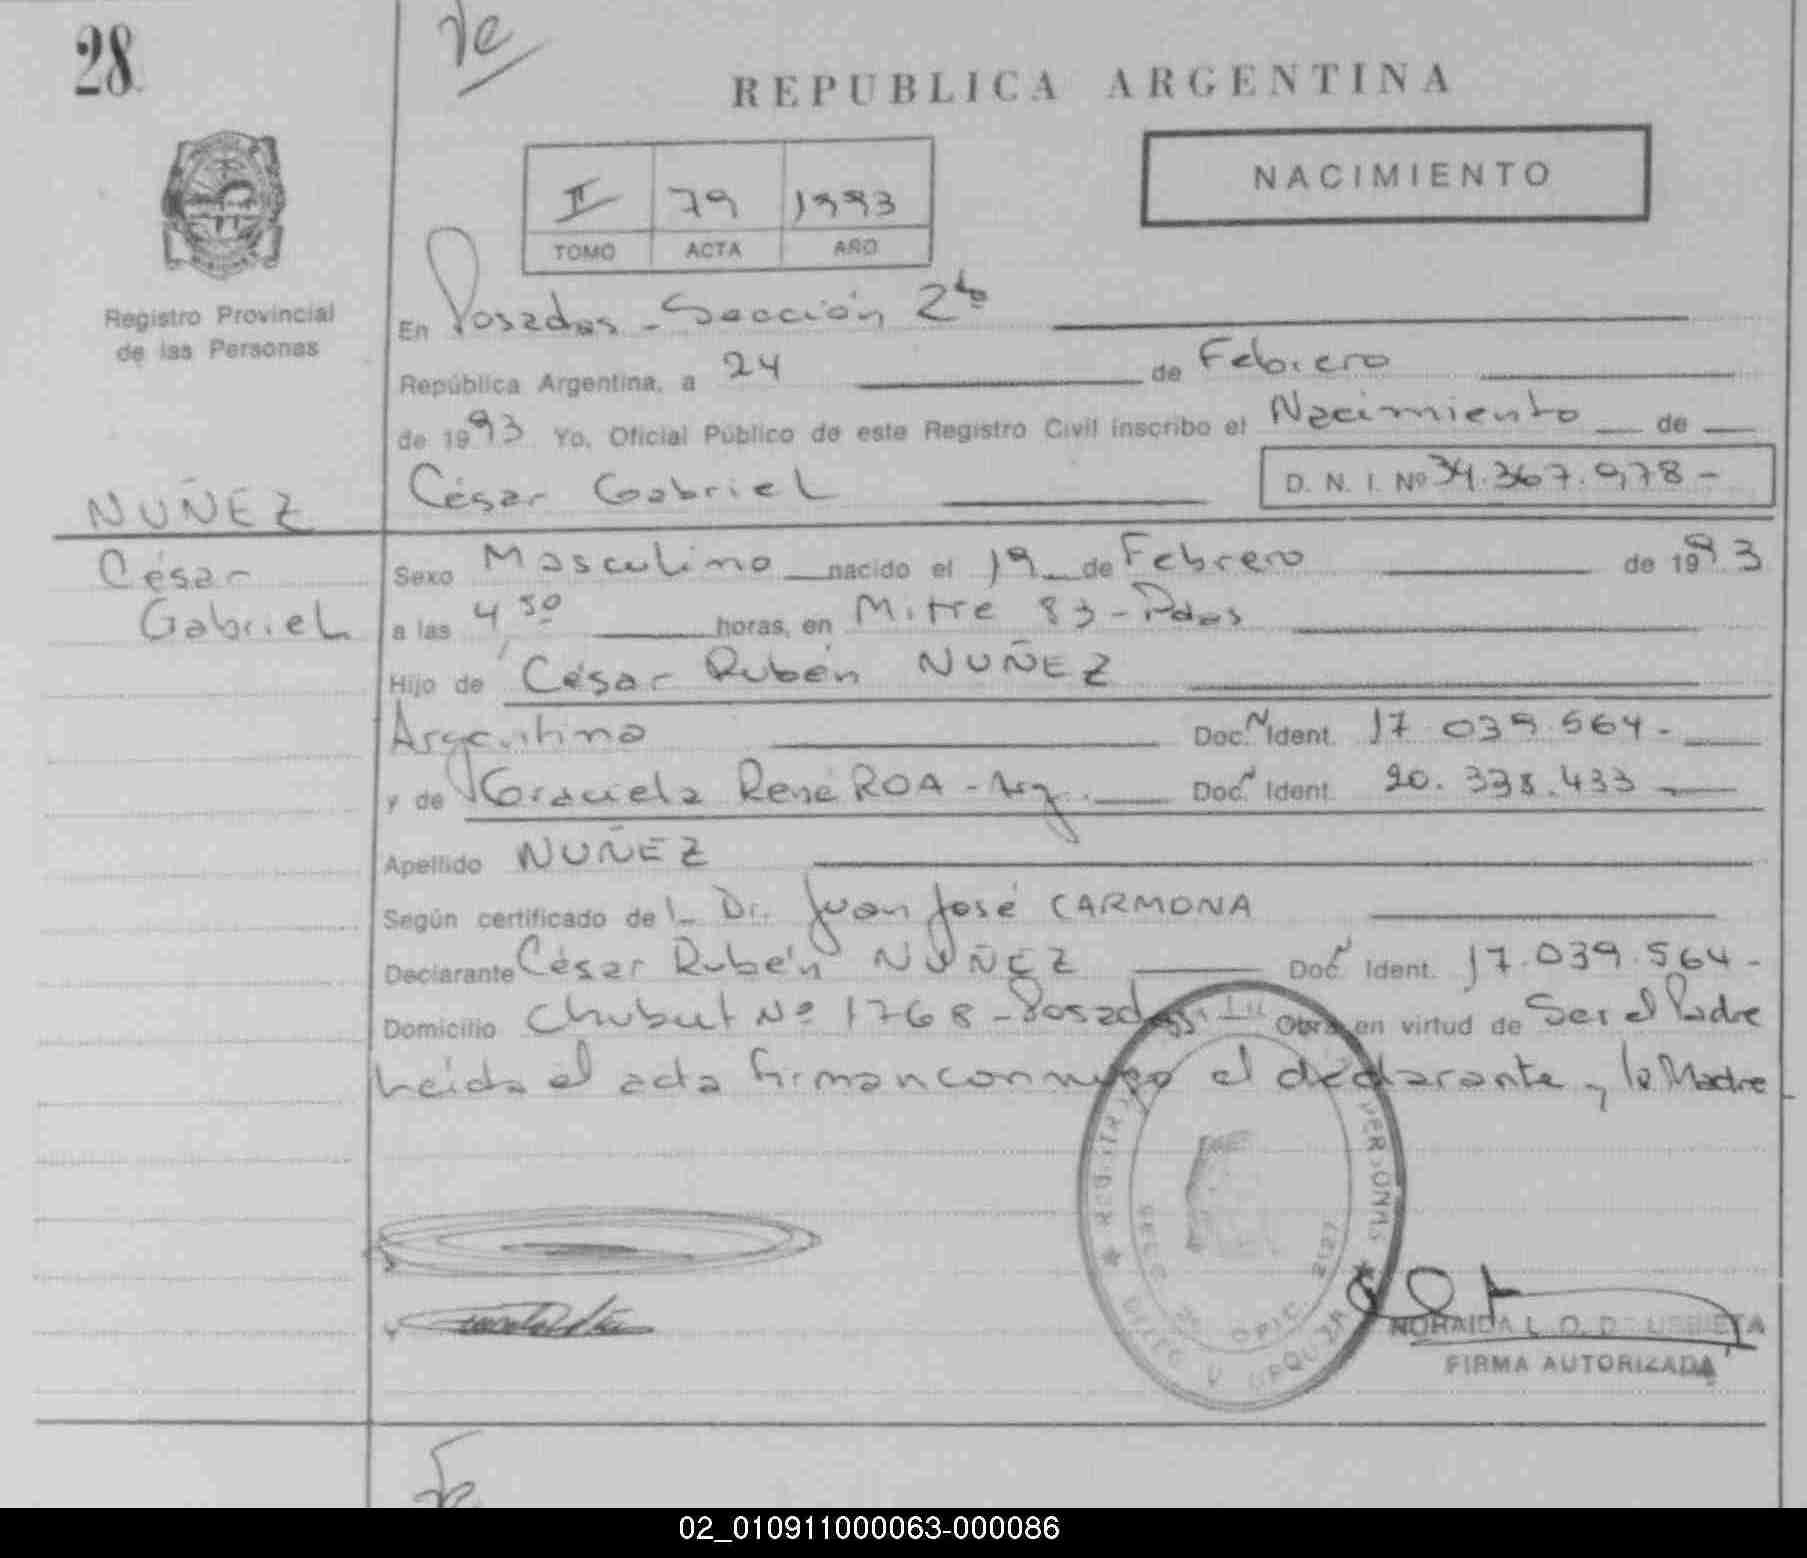 28
Ve
REPUBLICA ARGENTINA
NACIMIENTO
II 79 1993
TOMO ACTA AÑO
Registro Provincial
de las Personas
En Posadas - Sección 2da
República Argentina, a 24 de Febrero
de 1993 Yo, Oficial Público de este Registro Civil inscribo el Nacimiento de
César Gabriel D. N. I. Nº 34.367.978-
NUÑEZ
César
Gabriel
Sexo Masculino nacido el 19 de Febrero de 1993
a las 4 50 horas, en Mitre 83 - Pdas
Hijo de César Rubén NUÑEZ
Argentino Doc. N Ident. 17.039.564-
y de Graciela René ROA - Arg. Doc. N Ident. 20.338.433
Apellido NUÑEZ
Según certificado del Dr. Juan José CARMONA
Declarante César Rubén NUÑEZ Doc. N Ident. 17.039.564-
Domicilio Chubut Nº 1768 - Posadas Obra en virtud de Ser el Padre
Leída el acta firman conmigo el declarante y la Madre
OFIC. 2127
URQUIZA
NORAIDA L. O. D
FIRMA AUTORIZADA
02_010911000063-000086